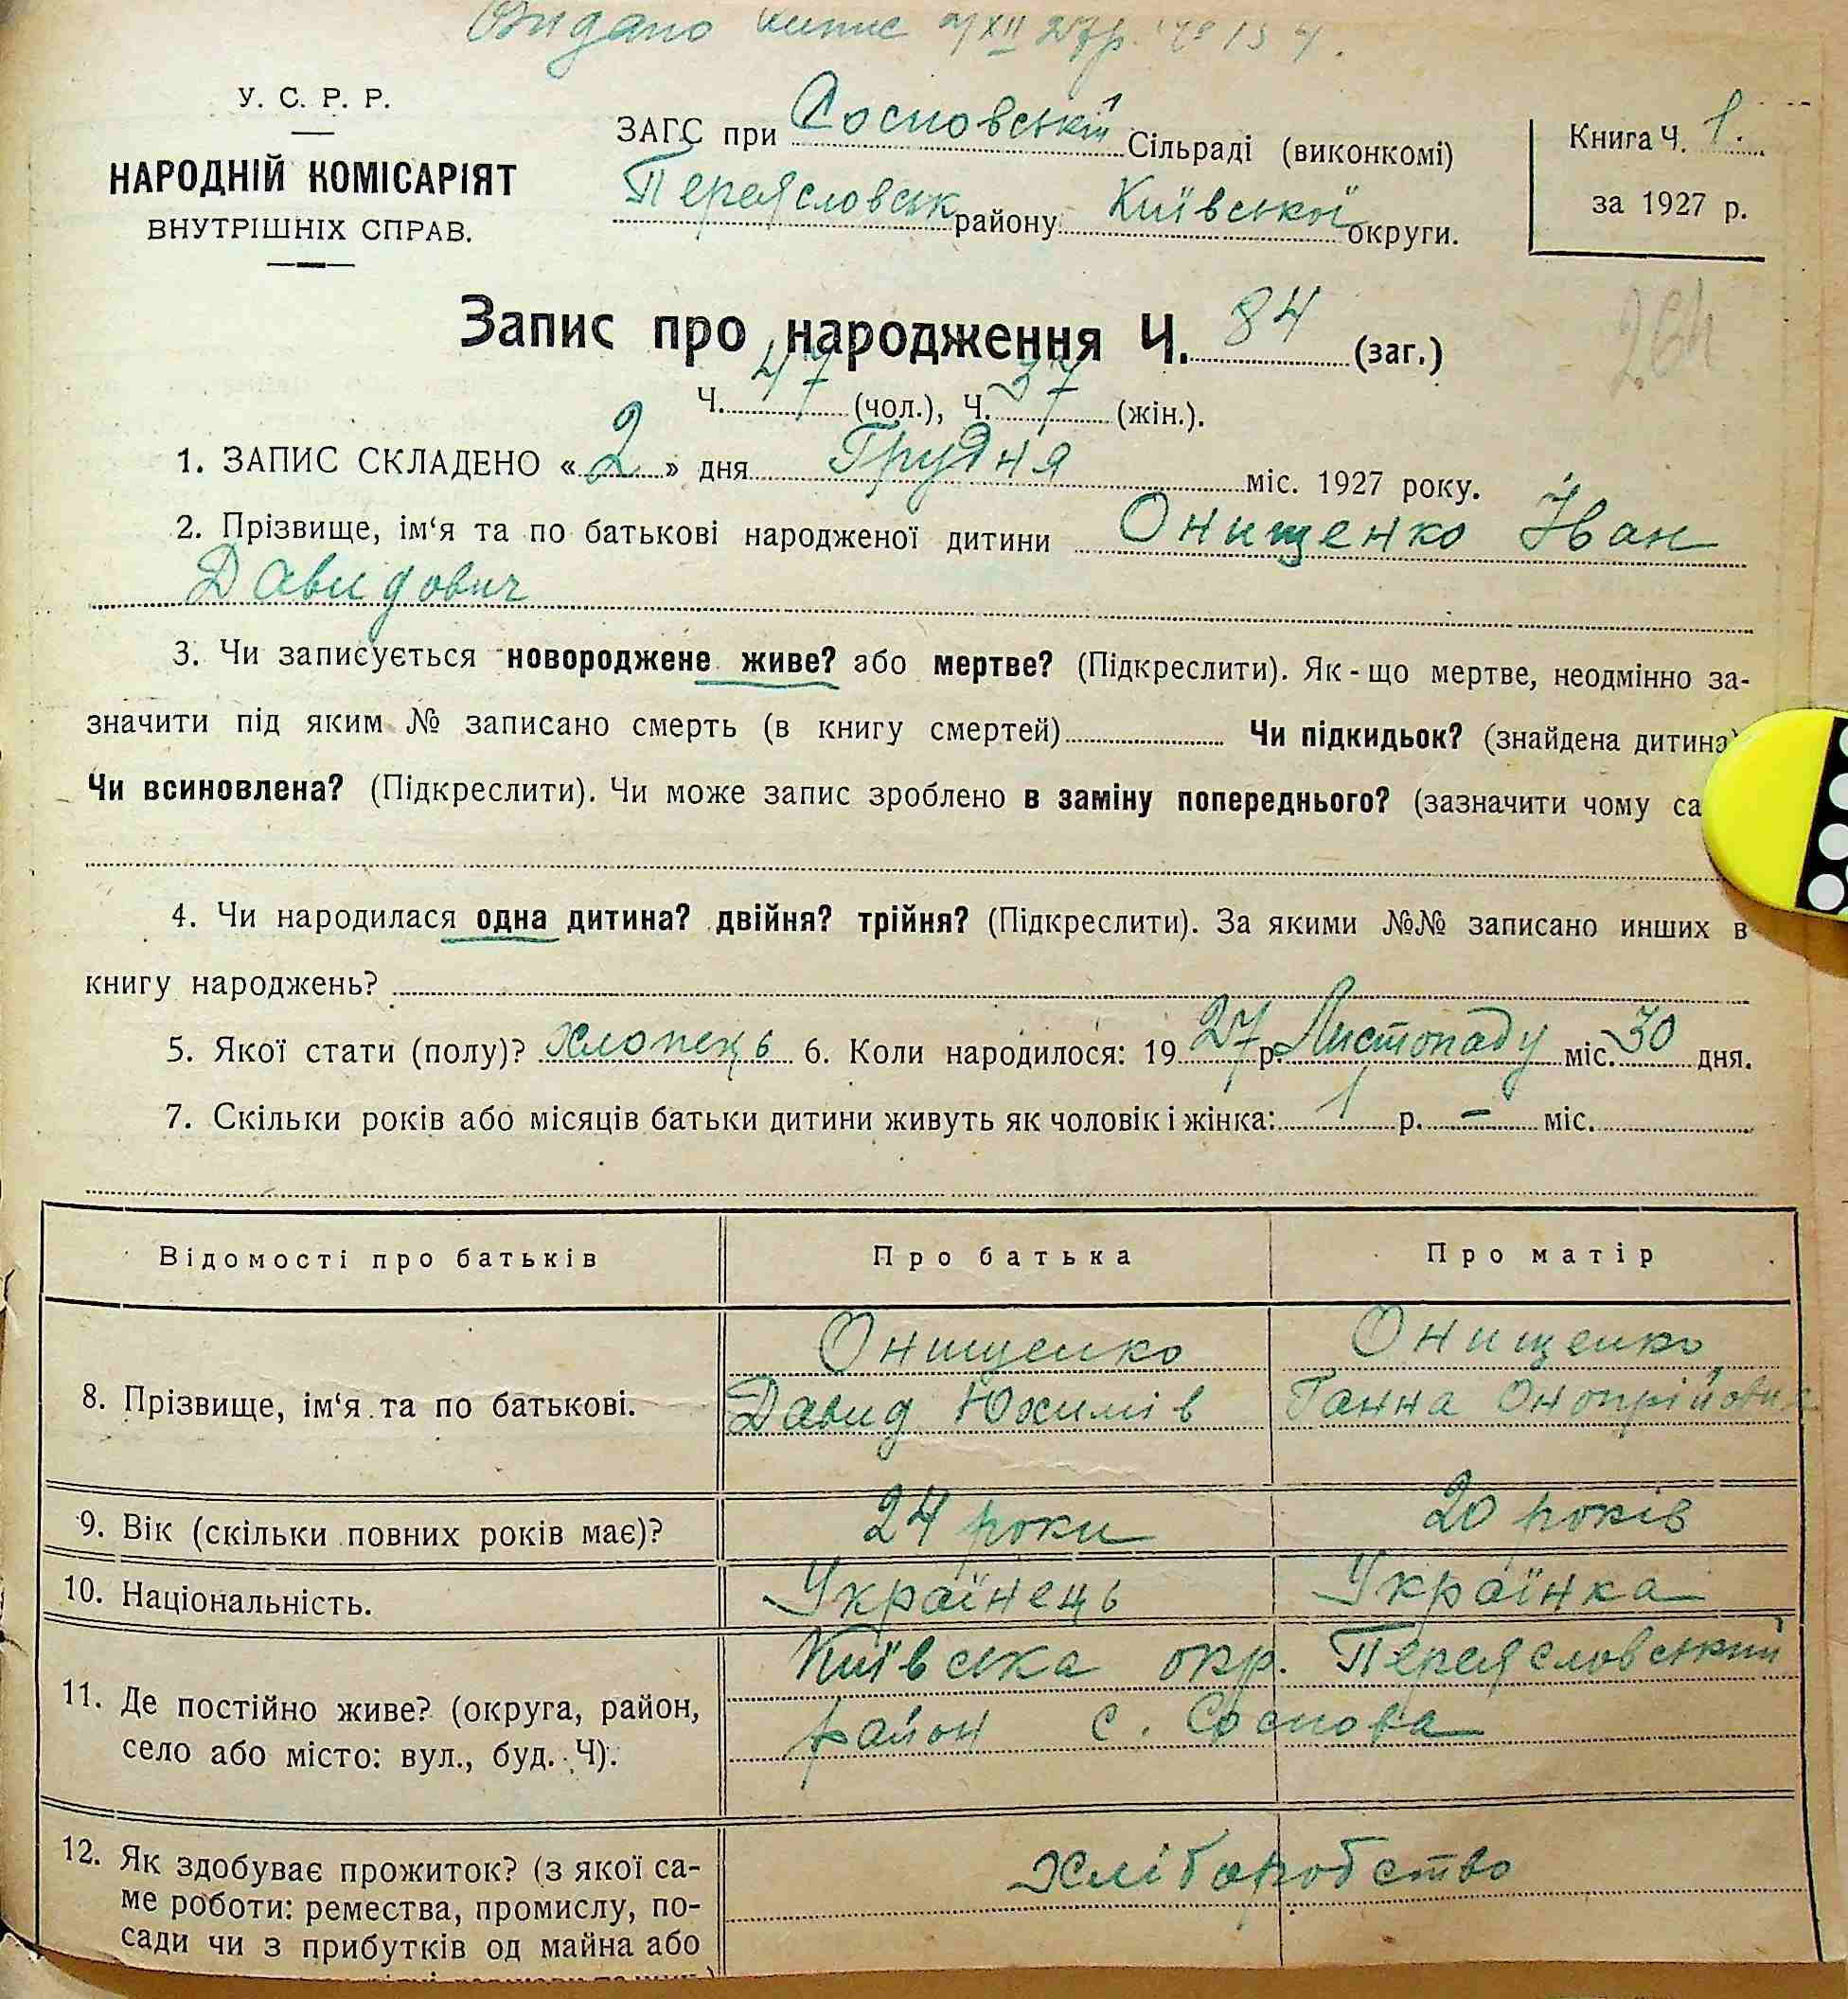 Видано випис 2/XII 27р. № 134.
У. С. Р. Р.
НАРОДНІЙ КОМІСАРІЯТ
ВНУТРІШНІХ СПРАВ.
ЗАГС при Сосновській Сільраді (виконкомі)
Переясловськ району Київської округи.
Книга Ч. 1.
за 1927 р.
Запис про народження Ч. 84 (заг.)
264
Ч. 47 (чол.), Ч. 37 (жін.).
1. ЗАПИС СКЛАДЕНО «2» дня Грудня міс. 1927 року.
2. Прізвище, ім‘я та по батькові народженої дитини Онищенко Іван
Давидович
3. Чи записується новороджене живе? або мертве? (Підкреслити). Як-що мертве, неодмінно за-
значити під яким № записано смерть (в книгу смертей) Чи підкидьок? (знайдена дитина)
Чи всиновлена? (Підкреслити). Чи може запис зроблено в заміну попереднього? (зазначити чому са
4. Чи народилася одна дитина? двійня? трійня? (Підкреслити). За якими №№ записано инших в
книгу народжень?
5. Якої стати (полу)? хлопець 6. Коли народилося: 1927 р. Листопаду міс. 30 дня.
7. Скільки років або місяців батьки дитини живуть як чоловік і жінка: 1 р. – міс.
Відомості про батьків Про батька Про матір
Онищенко Онищенко
8. Прізвище, ім‘я та по батькові. Давид Юхимів Ганна Онопрійовна
9. Вік (скільки повних років має)? 24 роки 20 років
10. Національність. Українець Українка
Київська окр. Переясловський
11. Де постійно живе? (округа, район, район с. Соснова
село або місто: вул., буд. Ч).
12. Як здобуває прожиток? (з якої са- Хліборобство
ме роботи: ремества, промислу, по-
сади чи з прибутків од майна або